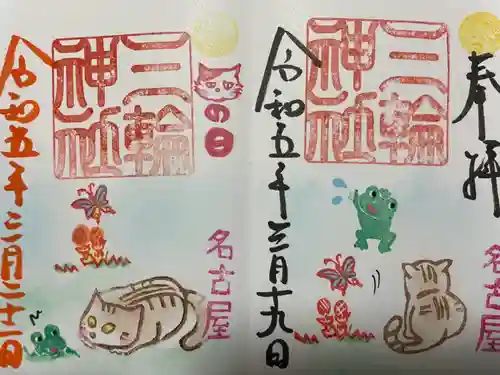 奉拝
三輪
神社
名古屋
令和五年三月十九日
の日
三輪
神社
名古屋
令和五年三月二十二日